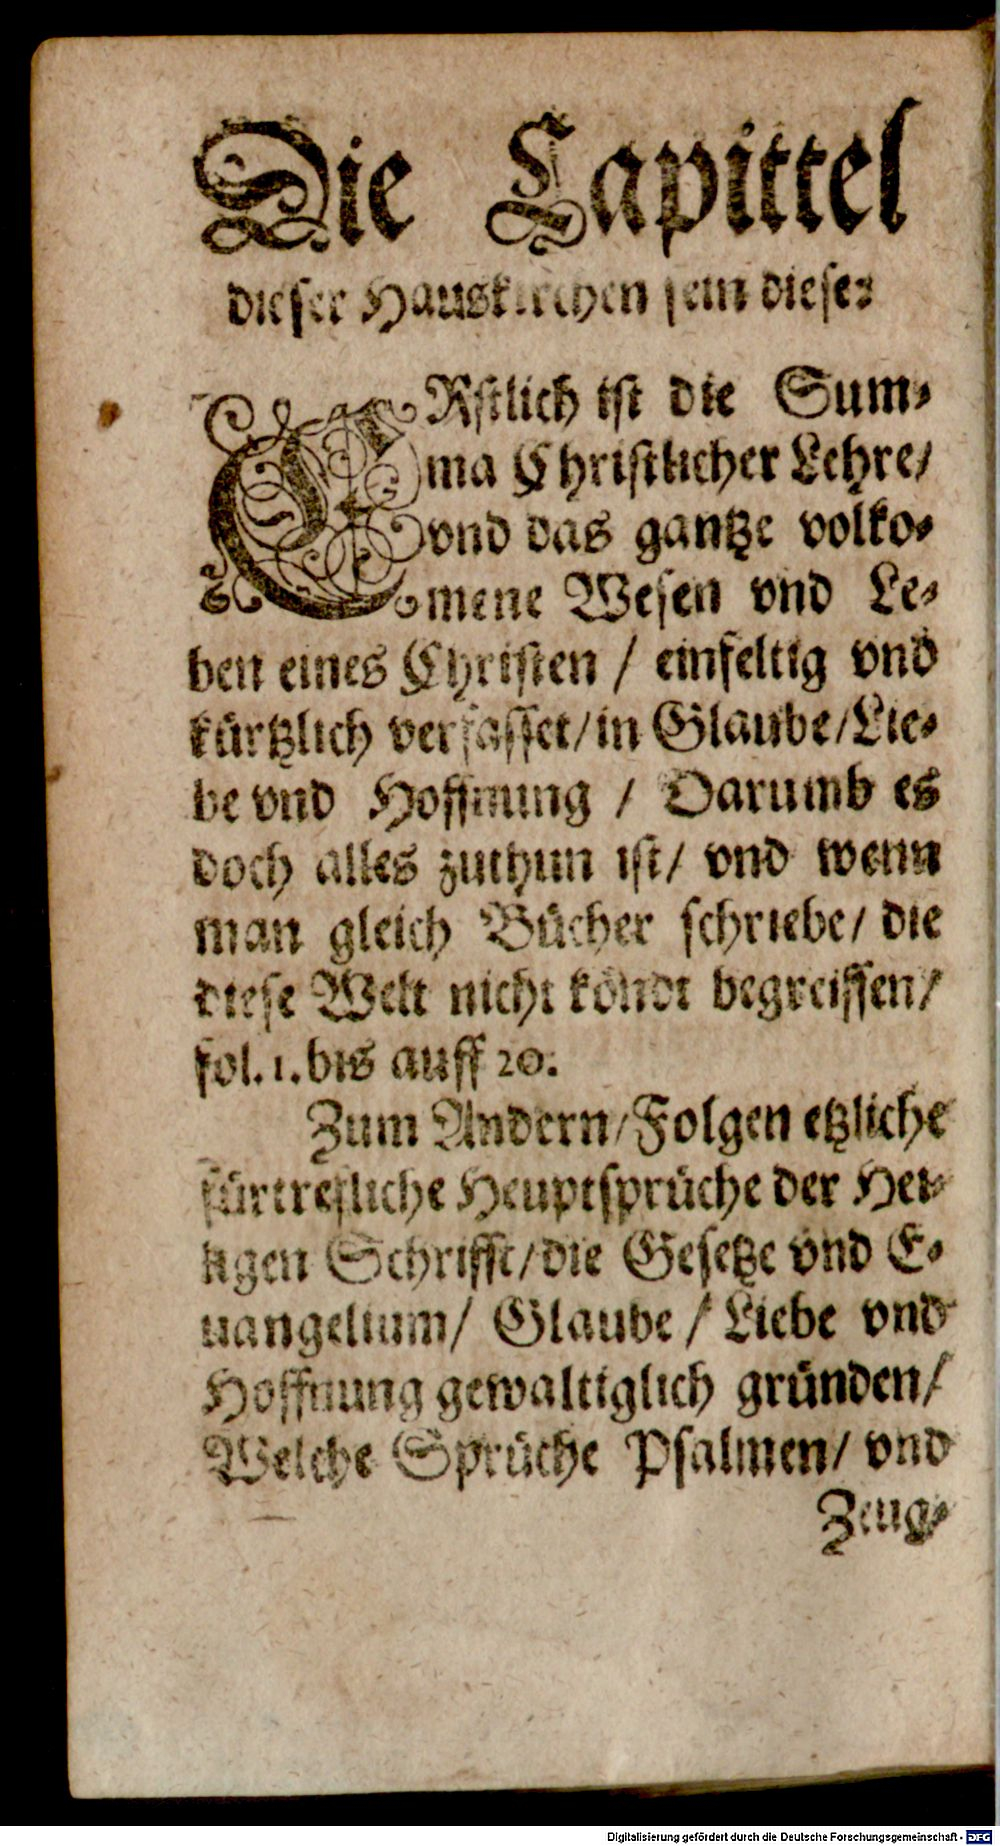 Die Capittel
dieser Hauskirchen sein diese:
ERstlich ist die Sum⸗
ma Christlicher Lehre/
vnd das gantze volko⸗
mene Wesen vnd Le⸗
ben eines Christen / einfeltig vnd
kürtzlich verfasset/in Glaube/Lie⸗
be vnd Hoffnung / Darumb es
doch alles zuthun ist/ vnd wenn
man gleich Bücher schriebe/ die
diese Welt nicht köndt begreiffen/
fol. 1. bis auff 20.
Zum Andern/Folgen etzliche
fürtrefliche Heuptsprüche der Hei⸗
ligen Schrifft/die Gesetze vnd E⸗
uangelium/ Glaube / Liebe vnd
Hoffnung gewaltiglich gründen/
Welche Sprüche Psalmen/ vnd
Zeug⸗
Digitalisierung gefördert durch die Deutsche Forschungsgemeinschaft - DFG